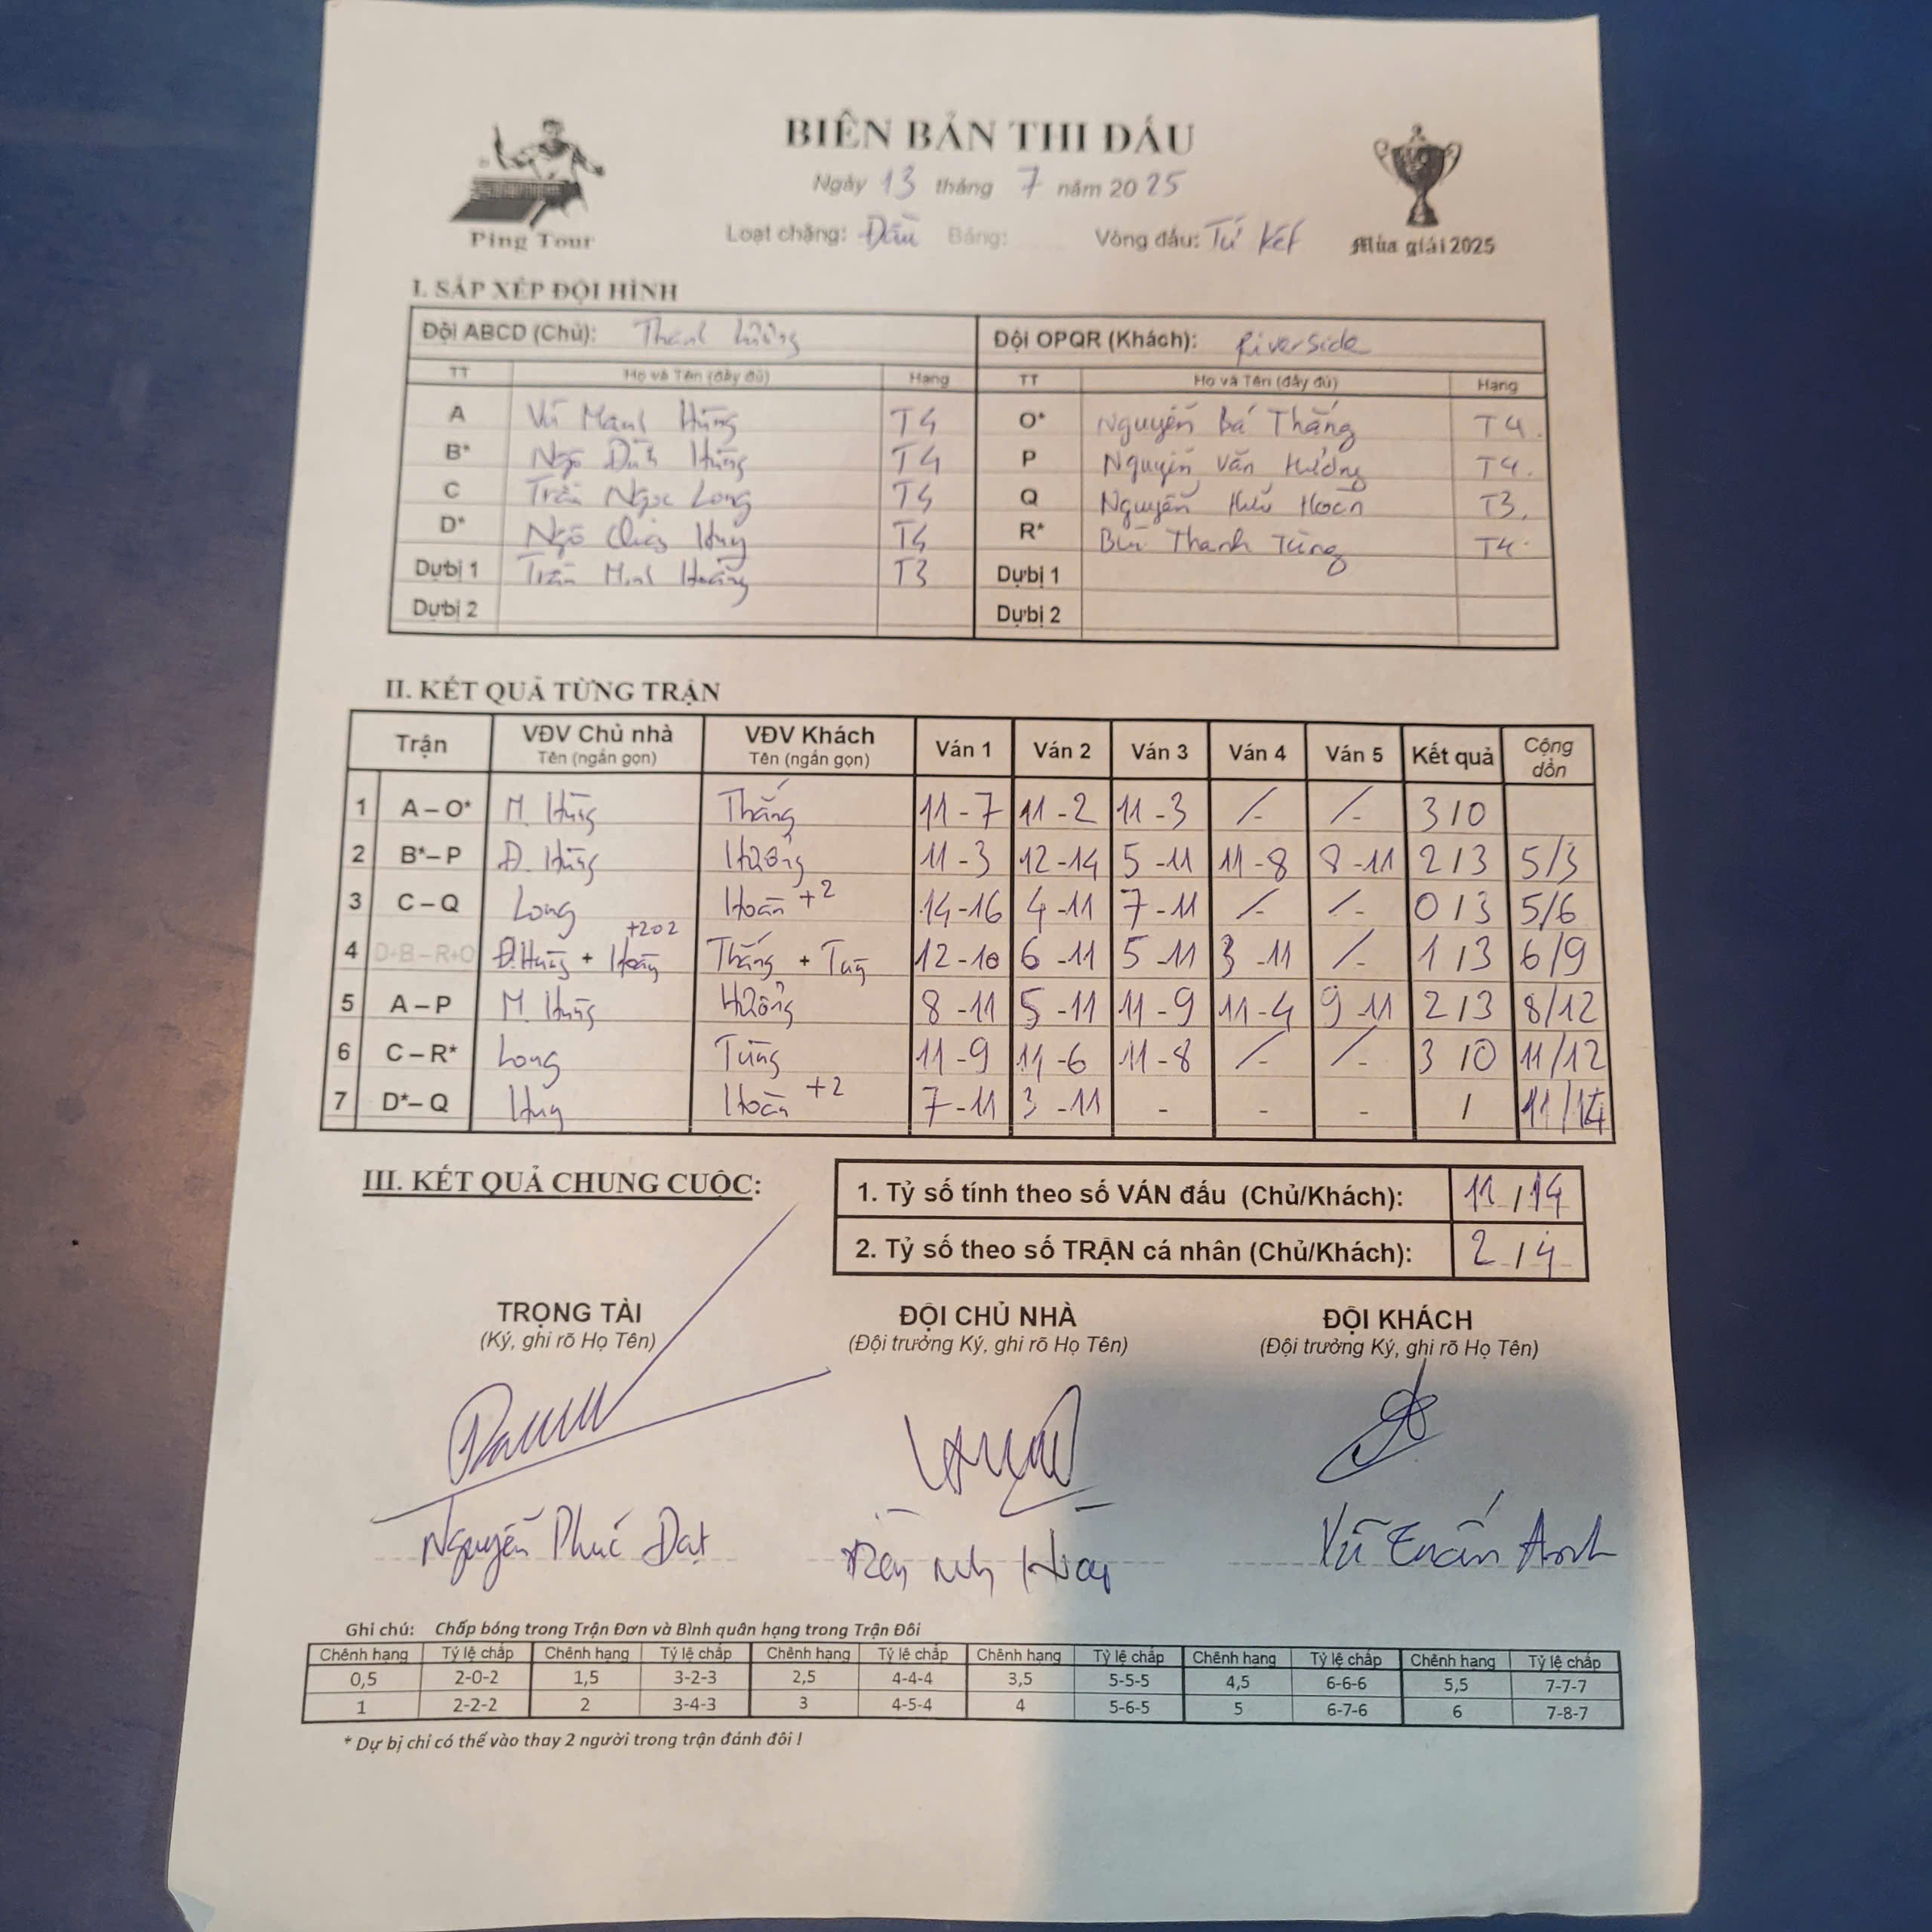 BIÊN BẢN THI ĐẤU
Ngày 13 tháng 7 năm 2025
Loạt chặng: Đấu Bảng: Vòng đấu: Tứ Kết
Ping Tour
Mùa giải 2025
I. SẮP XẾP ĐỘI HÌNH
Đội ABCD (Chủ): Đội OPQR (Khách): Riverside
TT Họ và Tên (đầy đủ) Hạng TT Họ và Tên (đầy đủ) Hạng
A Vũ Mạnh Hùng T4 O* Nguyễn Bá Thắng T4.
B* Ngô Đình Hùng T4 P Nguyễn Văn Hưởng T4.
C Trần Ngọc Long T4 Q Nguyễn Hữu Hoàn T3.
D* Ngô Huy T4 R* Bùi Thanh Tùng T4.
Dự bị 1 Trần Minh Hoàng T3 Dự bị 1
Dự bị 2 Dự bị 2
II. KẾT QUẢ TỪNG TRẬN
Trận VĐV Chủ nhà VĐV Khách Ván 1 Ván 2 Ván 3 Ván 4 Ván 5 Kết quả Cộng dồn
Tên (ngắn gọn) Tên (ngắn gọn)
1 A – O* M. Hùng Thắng 11 - 7 11 - 2 11 - 3 / - / - 3 / 0
2 B* – P Đ. Hùng Hưởng 11 - 3 12 - 14 5 - 11 11 - 8 8 - 11 2 / 3 5/3
3 C – Q Long Hoàn +2 14 - 16 4 - 11 7 - 11 / - / - 0 / 3 5/6
+202
4 D+B – R+O Đ.Hùng + Hoàng Thắng + Tùng 12 - 10 6 - 11 5 - 11 3 - 11 / - 1 / 3 6/9
5 A – P M. Hùng Hưởng 8 - 11 5 - 11 11 - 9 11 - 4 9 - 11 2 / 3 8/12
6 C – R* Long Tùng 11 - 9 11 - 6 11 - 8 / - / - 3 / 0 11/12
7 D* – Q Huy Hoàn +2 7 - 11 3 - 11 - - - / 11/14
III. KẾT QUẢ CHUNG CUỘC:
1. Tỷ số tính theo số VÁN đấu (Chủ/Khách): 11 / 14
2. Tỷ số theo số TRẬN cá nhân (Chủ/Khách): 2 / 4
TRỌNG TÀI ĐỘI CHỦ NHÀ ĐỘI KHÁCH
(Ký, ghi rõ Họ Tên) (Đội trưởng Ký, ghi rõ Họ Tên) (Đội trưởng Ký, ghi rõ Họ Tên)
Nguyễn Phúc Đạt Vũ Tuấn Anh
Ghi chú: Chấp bóng trong Trận Đơn và Bình quân hạng trong Trận Đôi
Chênh hạng Tỷ lệ chấp Chênh hạng Tỷ lệ chấp Chênh hạng Tỷ lệ chấp Chênh hạng Tỷ lệ chấp Chênh hạng Tỷ lệ chấp Chênh hạng Tỷ lệ chấp
0,5 2-0-2 1,5 3-2-3 2,5 4-4-4 3,5 5-5-5 4,5 6-6-6 5,5 7-7-7
1 2-2-2 2 3-4-3 3 4-5-4 4 5-6-5 5 6-7-6 6 7-8-7
* Dự bị chỉ có thể vào thay 2 người trong trận đánh đôi !